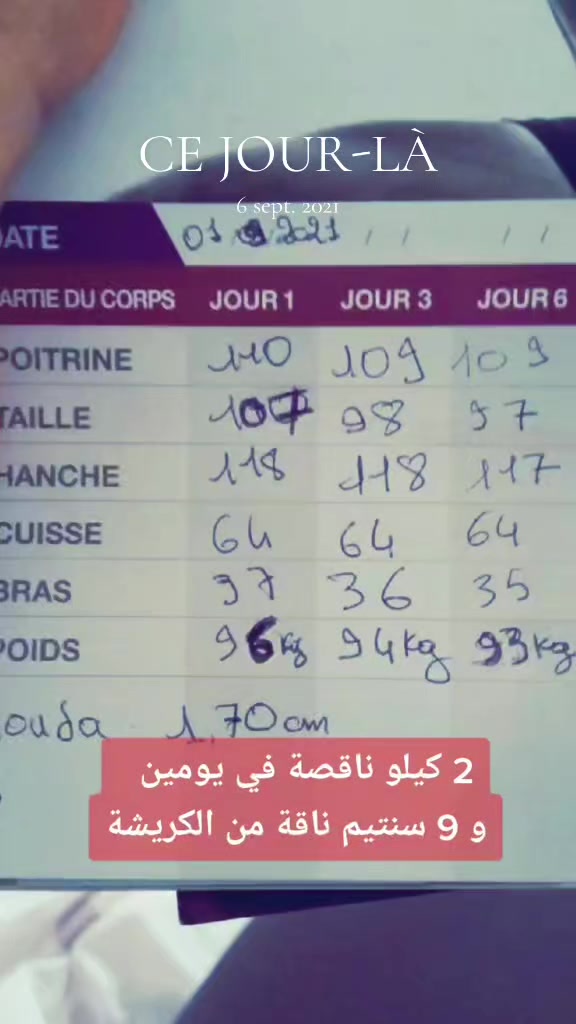 CE JOUR-LÀ
6 sept. 2021
ATE 03 2021 / / / /
ARTIE DU CORPS JOUR 1 JOUR 3 JOUR 6
POITRINE 110 109 109
TAILLE 107 98 97
HANCHE 118 118 117
CUISSE 64 64 64
BRAS 37 36 35
POIDS 96kg 94kg 93kg
ouda 1,70cm
2 كيلو ناقصة في يومين
و 9 سنتيم ناقة من الكريشة